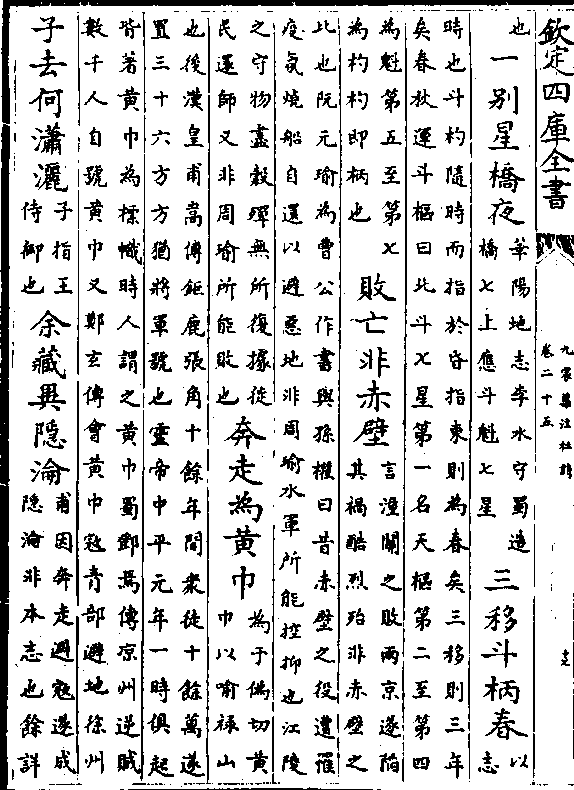 欽定四庫全書
九家集注杜詩
卷二十五
也
一別星橋夜
華陽地志李水守蜀造
橋七上應斗魁七星
三移斗柄春
以
志
時也斗杓隨時而指於昏指東則為春矣三移則三年
矣春秋運斗樞曰北斗七星第一名天樞第二至第四
為魁第五至第七
為杓杓即柄也
敗亡非赤壁
言潼關之敗兩京遂陷
其禍酷烈殆非赤壁之
比也阮元瑜為曹公作書與孫權曰昔赤壁之役遭罹
疫氣燒船自還以避惡地非周瑜水軍所能控抑也江陵
之守物盡穀殫無所復據徙
民還師又非周瑜所能敗也
奔走為黃巾
為于偽切黃
巾以喻祿山
也後漢皇甫嵩傳鉅鹿張角十餘年間衆徒十餘萬遂
置三十六方方猶將軍號也靈帝中平元年一時俱起
皆著黃巾為標幟時人謂之黃巾蜀鄧焉傳涼州逆賊
數千人自號黃巾又鄭玄傳會黃巾寇青部避地徐州
子去何瀟灑
子指王
侍御也
余藏異隱淪
甫因奔走避寇遂成
隱淪非本志也餘詳